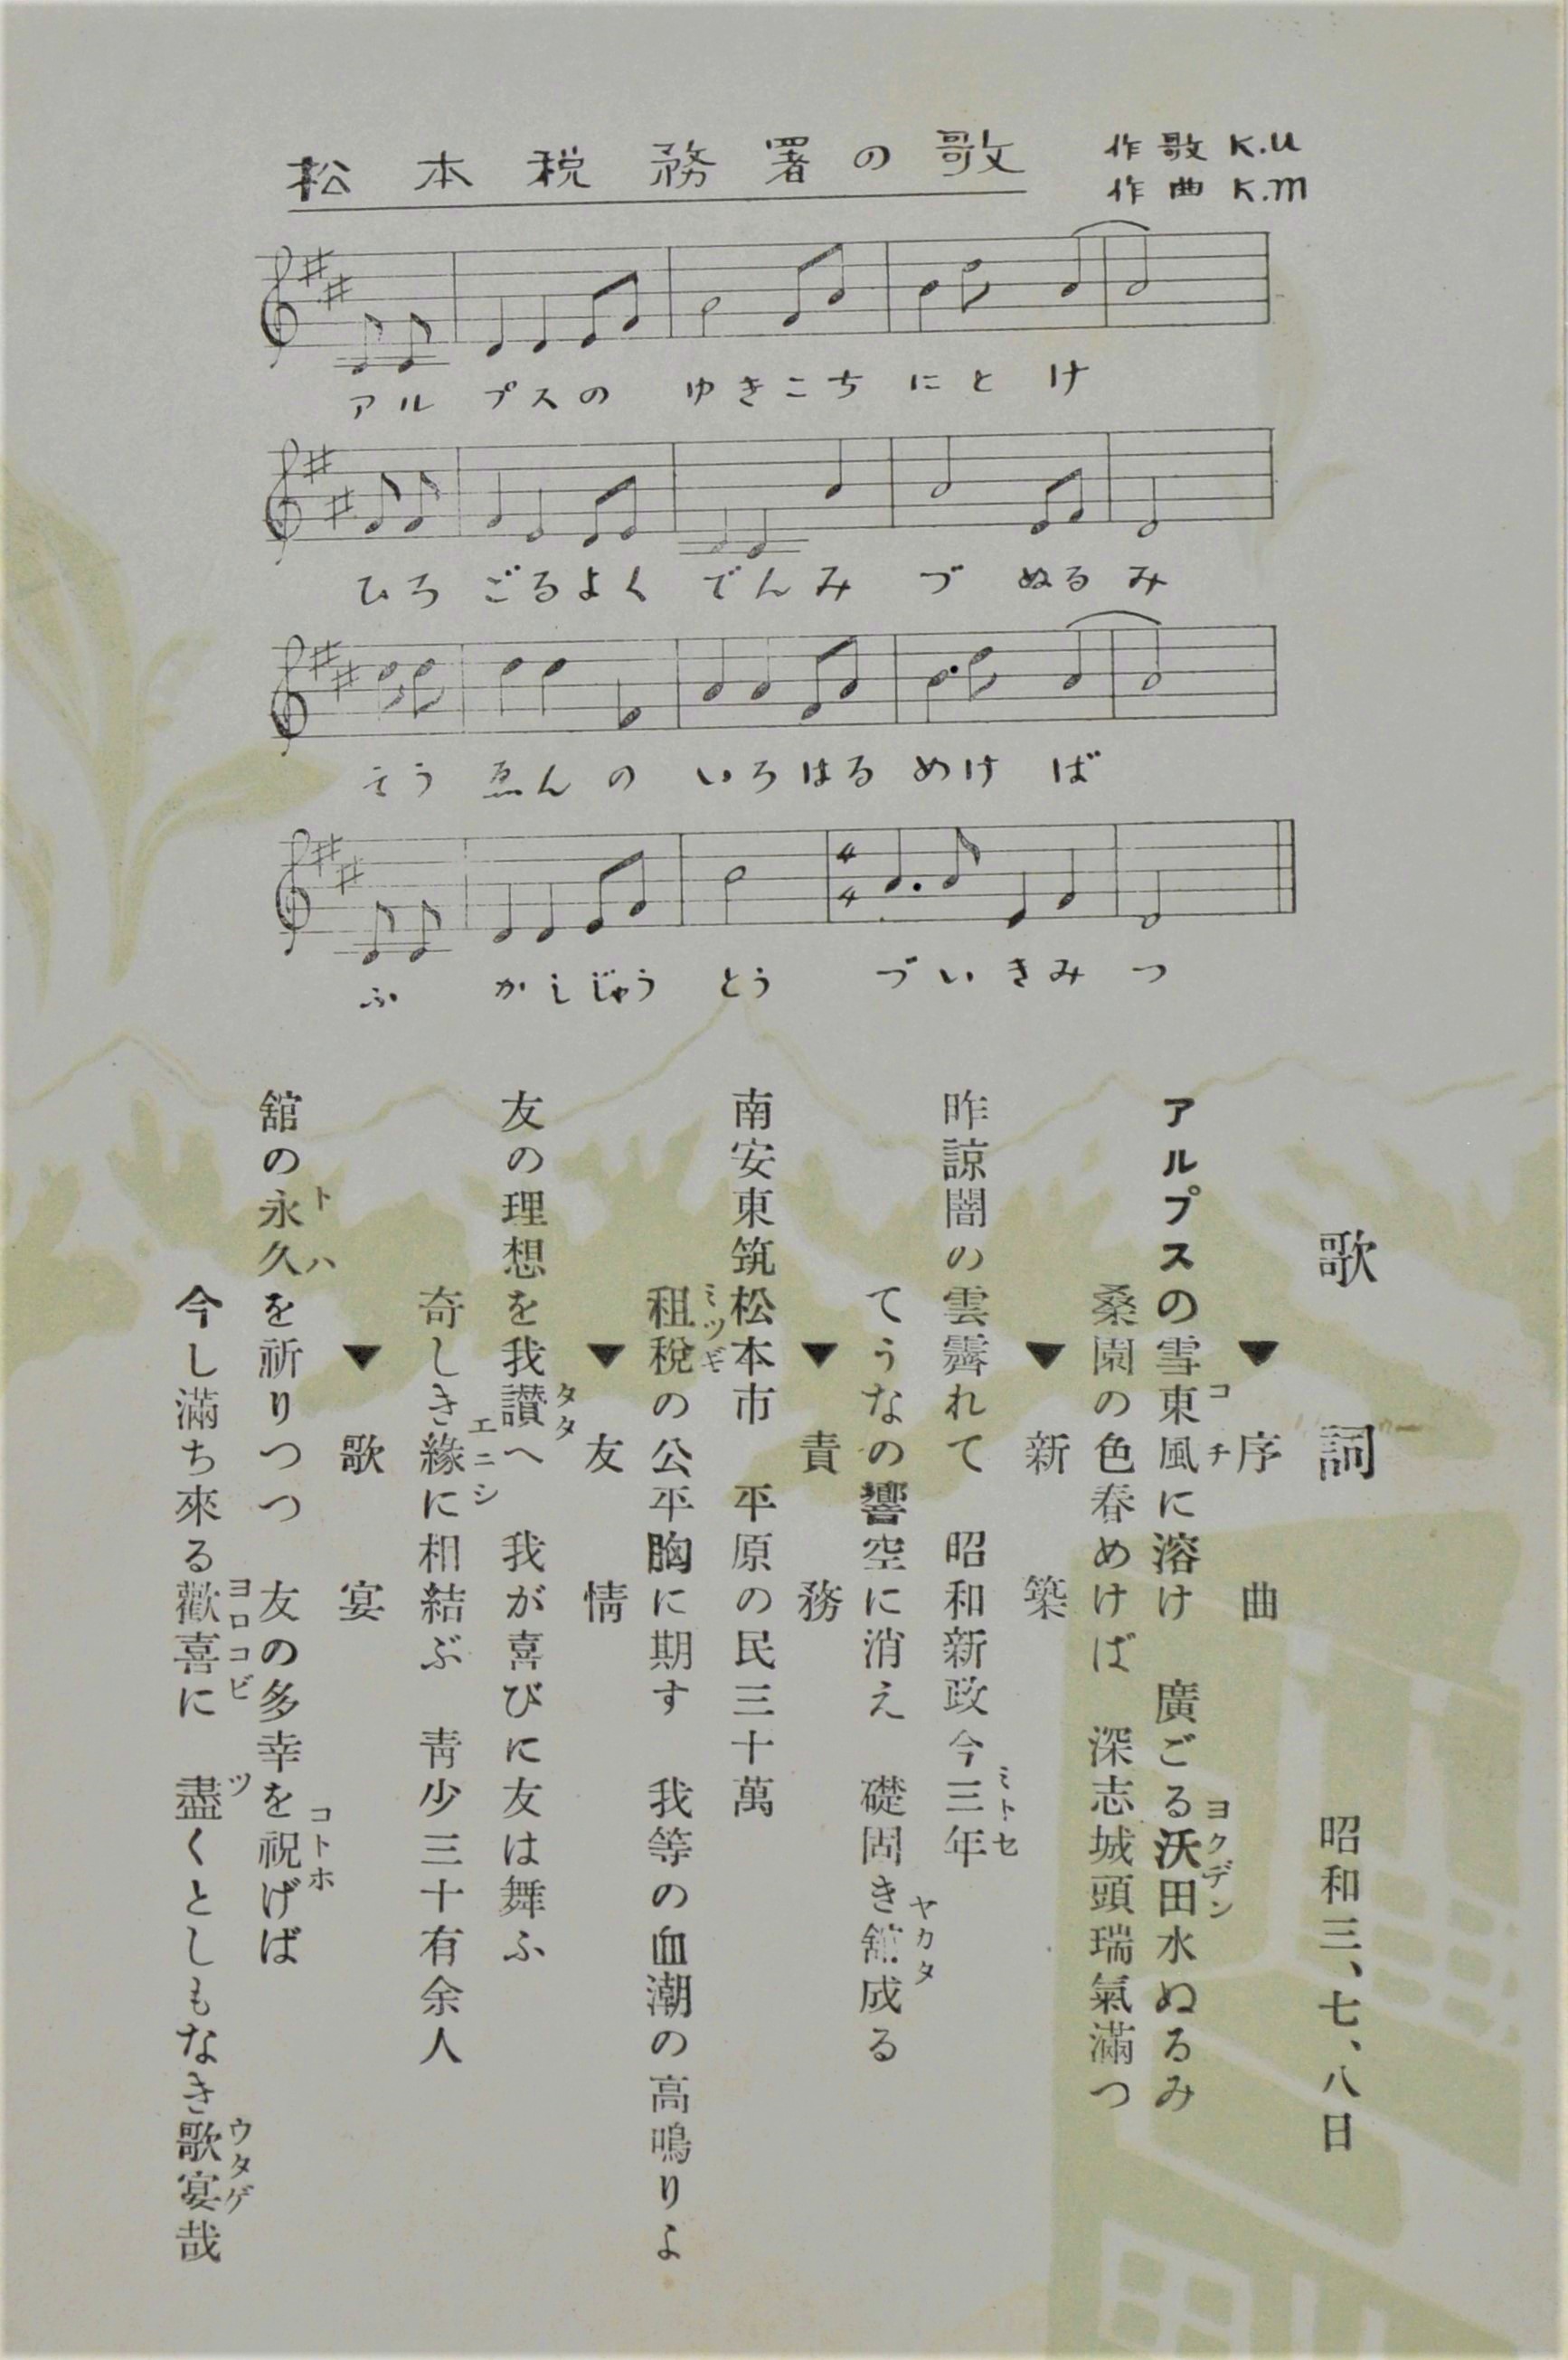 松本税務署の歌
作歌 K.U
作曲 K.M
アルプスの ゆきこちにとけ
ひろごるよくでんみづぬるみ
そうゑんの いろはるめけば
ふかしじゃうとうづいきみつ
歌詞 昭和三、七、八日
▼序曲
アルプスの雪東風に溶け 廣ごる沃田水ぬるみ
コチ ヨクデン
桑園の色春めけば 深志城頭瑞氣滿つ
▼新築
昨諒闇の雲霽れて 昭和新政今三年
ミトセ
てうなの響空に消え 礎固き舘成る
ヤカタ
▼責務
南安東筑松本市 平原の民三十萬
租稅の公平胸に期す 我等の血潮の高鳴りよ
ミツギ
▼友情
友の理想を我讃へ 我が喜びに友は舞ふ
タタ
奇しき緣に相結ぶ 靑少三十有余人
エニシ
▼歌宴
舘の永久を祈りつつ 友の多幸を祝げば
トハ コトホ
今し滿ち來る歡喜に 盡くとしもなき歌宴哉
ヨロコビ ツ ウタゲ